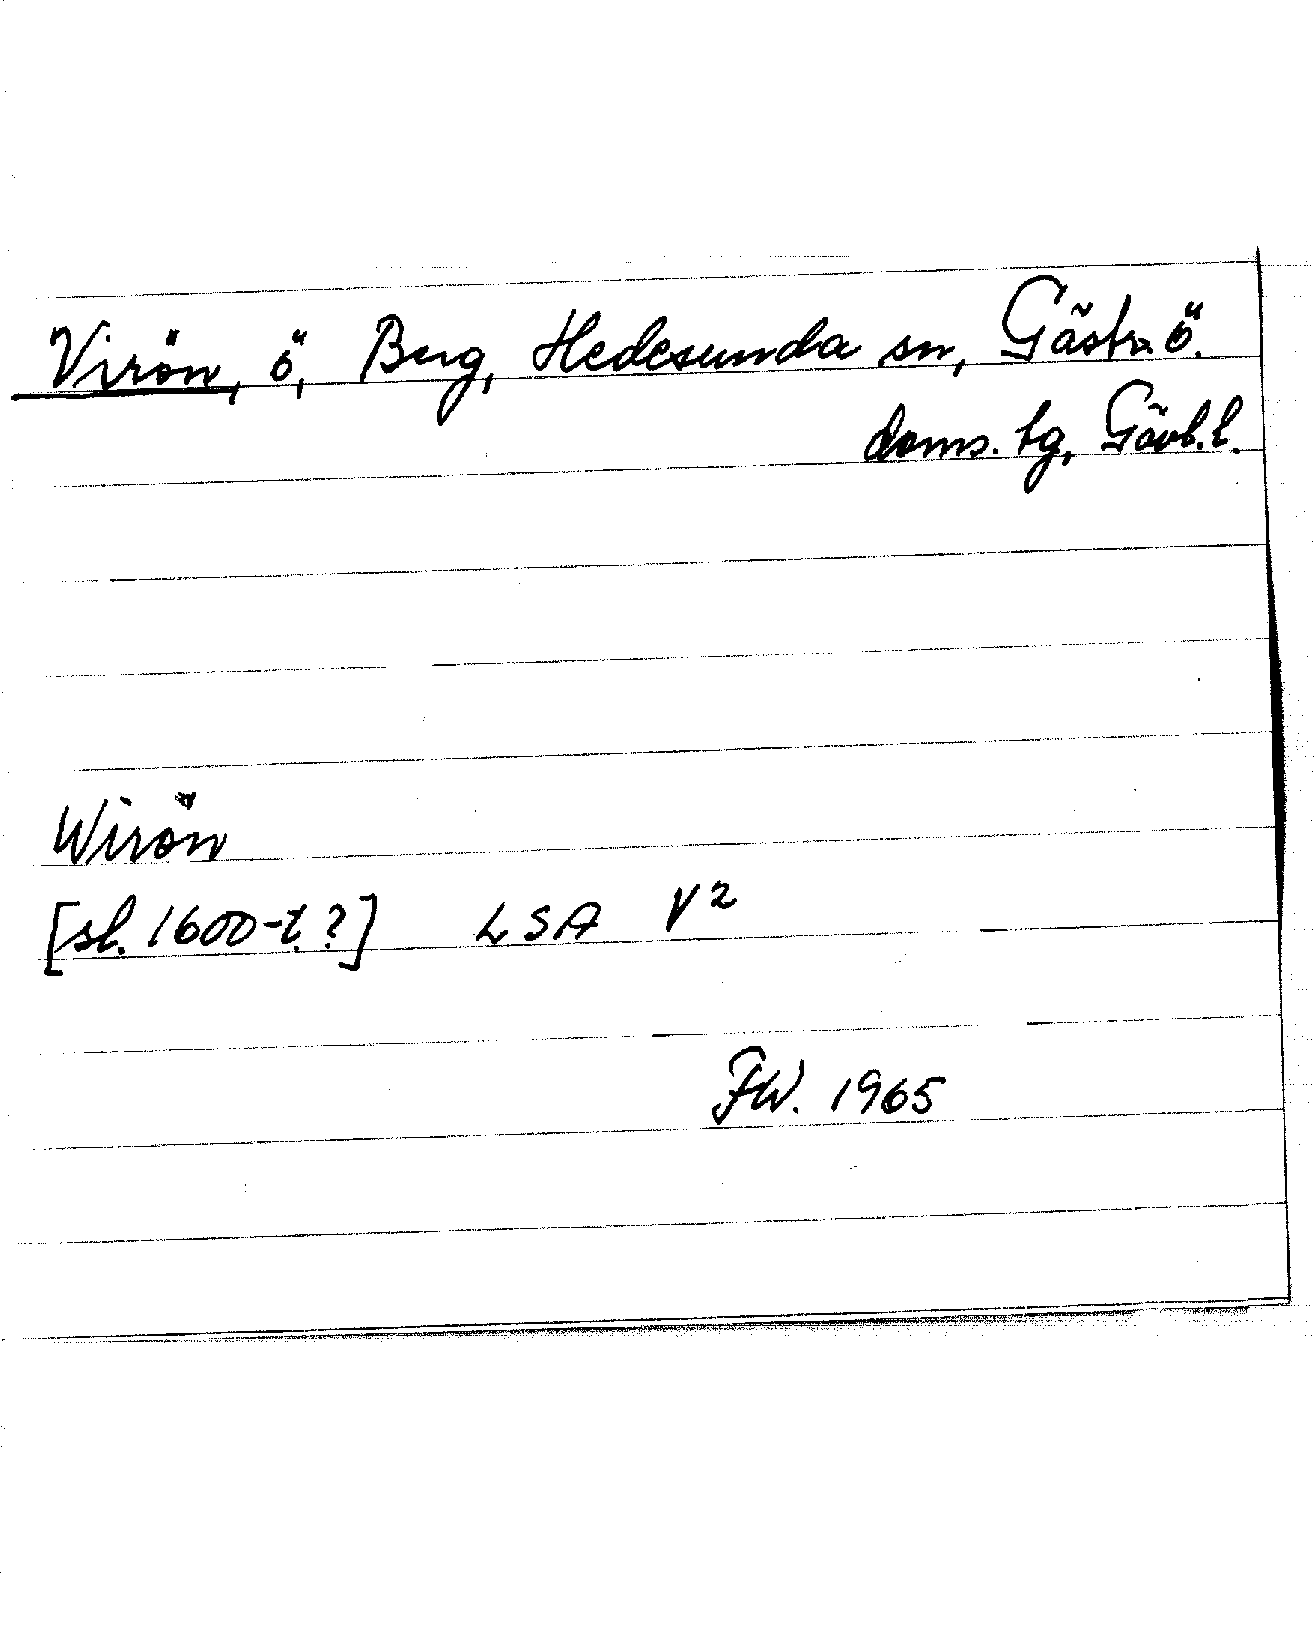 Virön, ö, Berg, Hedesunda sn, Gästr. ö.
doms. tg, Gävl. l.
Wirön
[sl. 1600-t.?] LSA V2
FW. 1965